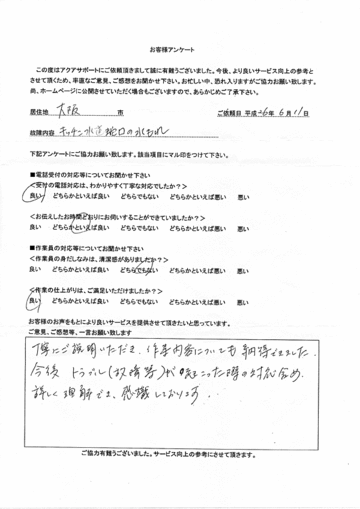 お客様アンケート
この度はアクアサポートにご依頼頂きまして誠に有難うございました。今後、より良いサービス向上の参考と
させて頂くため、率直なご意見、ご感想をお聞かせ下さい。お忙しい中、恐れ入りますがご協力お願い致します。
尚、ホームページに公開させていただく場合もございますので、あらかじめご了承下さい。
居住地 大阪 市 ご依頼日 平成26年6月11日
故障内容 キッチン水道蛇口の水もれ
下記アンケートにご協力お願い致します。該当項目にマル印をつけて下さい。
■電話受付の対応等についてお聞かせ下さい
<受付の電話対応は、わかりやすく丁寧な対応でしたか?>
良い どちらかといえば良い どちらでもない どちらかといえば悪い 悪い
<お伝えしたお時間どおりにお伺いすることができていましたか?>
良い どちらかといえば良い どちらでもない どちらかといえば悪い 悪い
■作業員の対応等についてお聞かせ下さい
<作業員の身だしなみは、清潔感がありましたか?>
良い どちらかといえば良い どちらでもない どちらかといえば悪い 悪い
<作業の仕上がりは、ご満足いただけましたか?>
良い どちらかといえば良い どちらでもない どちらかといえば悪い 悪い
お客様のお声をもとにより良いサービスを提供させて頂きたいと思っています。
ご意見、ご感想等、一言お願い致します
丁寧にご説明いただき、作業内容についても納得できました。
今後 トラブル(故障等)が起こった際の対応含め、
詳しく理解でき、感謝しております。
ご協力有難うございました。サービス向上の参考にさせて頂きます。